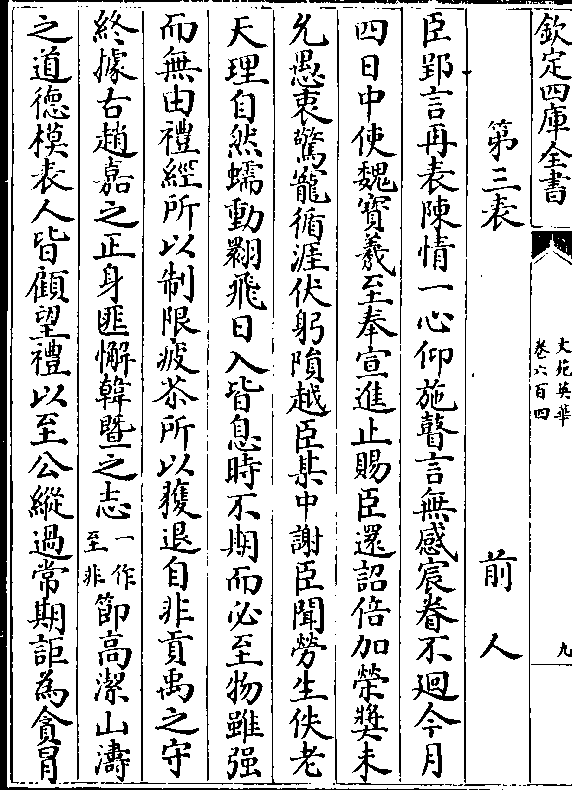 欽定四庫全書
文苑英華
卷六百四
九
第三表
前人
臣郢言再表陳情一心仰施瞽言無感宸眷不迴今月
四日中使魏寶羲至奉宣進止賜臣還詔倍加榮獎未
允愚衷驚寵循涯伏躬隕越臣某中謝臣聞勞生佚老
天理自然蠕動翾飛日入皆息時不期而必至物雖强
而無由禮經所以制限疲苶所以獲退自非貢禹之守
終據古趙嘉之正身匪懈韓暨之志一作至非節高潔山濤
之道德模表人皆顧望禮以至公縱過常期詎為貪冒